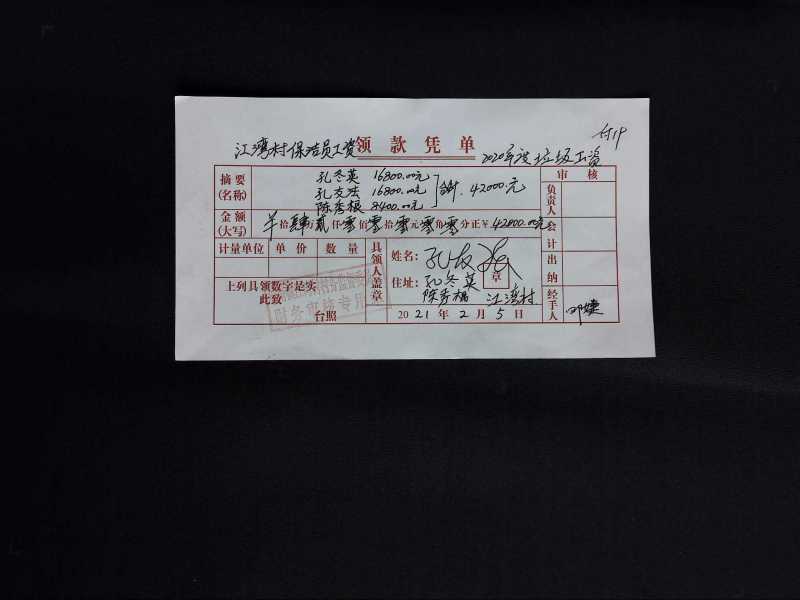 付1户
江湾村保洁员工资 领款凭单 2020年度垃圾工资
摘要(名称) 孔冬英 16800.00元
孔友法 16800.00元 合计:42000元
陈秀根 8400.00元
审核
负责人
金额(大写) 拾肆万贰仟零佰零拾零元零角零分正¥42000.00元
会计
计量单位 单价 数量
具领人盖章
姓名:孔友法
章
出纳
上列具领数字是实
此致
台照
住址:孔冬英
陈秀根 江湾村
财务审核专用章
2021年2月5日
经手人